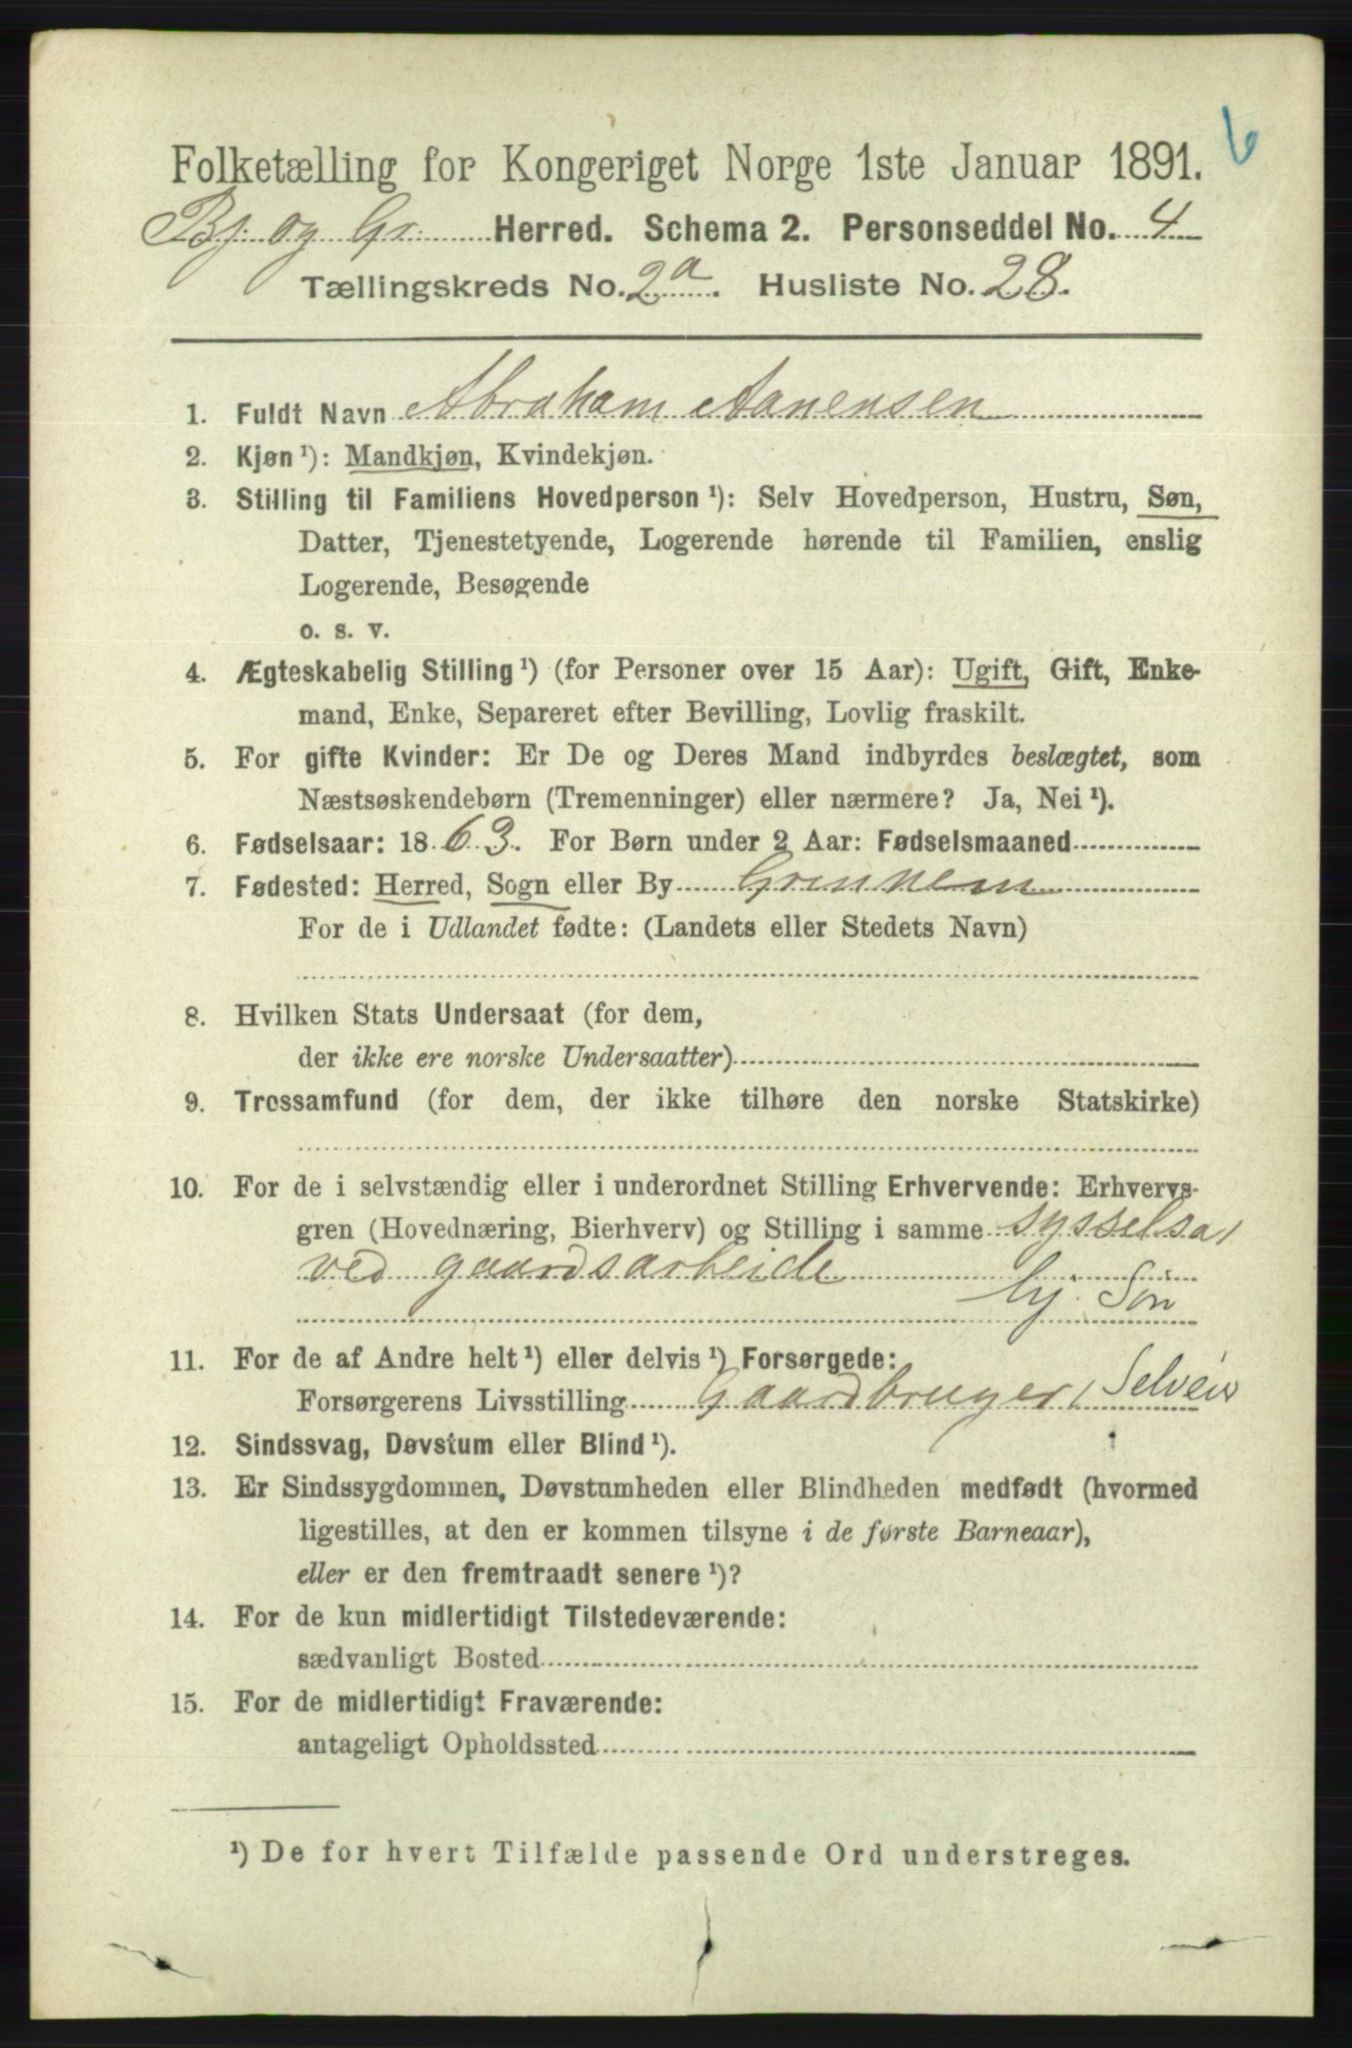 6
Folketælling for Kongeriget Norge 1ste Januar 1891.
Bj. og Gr. Herred. Schema 2. Personseddel No. 4
Tællingskreds No. 2a. Husliste No. 28.
1. Fuldt Navn Abraham Aanensen
2. Kjøn¹): Mandkjøn, Kvindekjøn.
3. Stilling til Familiens Hovedperson¹): Selv Hovedperson, Hustru, Søn,
Datter, Tjenestetyende, Logerende hørende til Familien, enslig
Logerende, Besøgende
o. s. v.
4. Ægteskabelig Stilling¹) (for Personer over 15 Aar): Ugift, Gift, Enke-
mand, Enke, Separeret efter Bevilling, Lovlig fraskilt.
5. For gifte Kvinder: Er De og Deres Mand indbyrdes beslægtet, som
Næstsøskendebørn (Tremenninger) eller nærmere? Ja, Nei¹).
6. Fødselsaar: 1863. For Børn under 2 Aar: Fødselsmaaned
7. Fødested: Herred, Sogn eller By Grinnem
For de i Udlandet fødte: (Landets eller Stedets Navn)
8. Hvilken Stats Undersaat (for dem,
der ikke ere norske Undersaatter)
9. Trossamfund (for dem, der ikke tilhøre den norske Statskirke)
10. For de i selvstændig eller i underordnet Stilling Erhvervende: Erhvervs-
gren (Hovednæring, Bierhverv) og Stilling i samme sysselsat
ved gaardsarbeide
hj. Søn
11. For de af Andre helt¹) eller delvis¹) Forsørgede:
Forsørgerens Livsstilling Gaardbruger, Selveier
12. Sindssvag, Døvstum eller Blind¹).
13. Er Sindssygdommen, Døvstumheden eller Blindheden medfødt (hvormed
ligestilles, at den er kommen tilsyne i de første Barneaar),
eller er den fremtraadt senere¹)?
14. For de kun midlertidigt Tilstedeværende:
sædvanligt Bosted
15. For de midlertidigt Fraværende:
antageligt Opholdssted
¹) De for hvert Tilfælde passende Ord understreges.